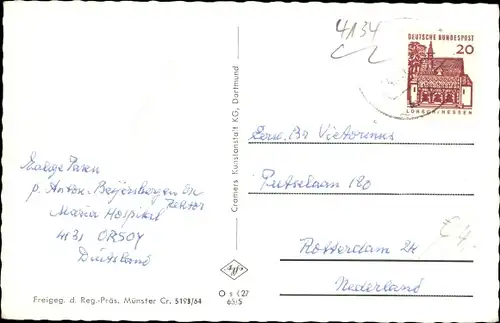 4134
DEUTSCHE BUNDESPOST
20
LORSCH/HESSEN
Zalige Pasen
p. Anton. Beijersbergen
Rektor
Maria Hospital
4131 ORSOY
Duitsland
Cramers Kunstanstalt KG, Dortmund
Eerw. Br Victorinus
Putselaan 120
Rotterdam 24
Nederland
Agfa
Freigeg. d. Reg.-Präs. Münster Cr. 5193/64
O s 627
65/5